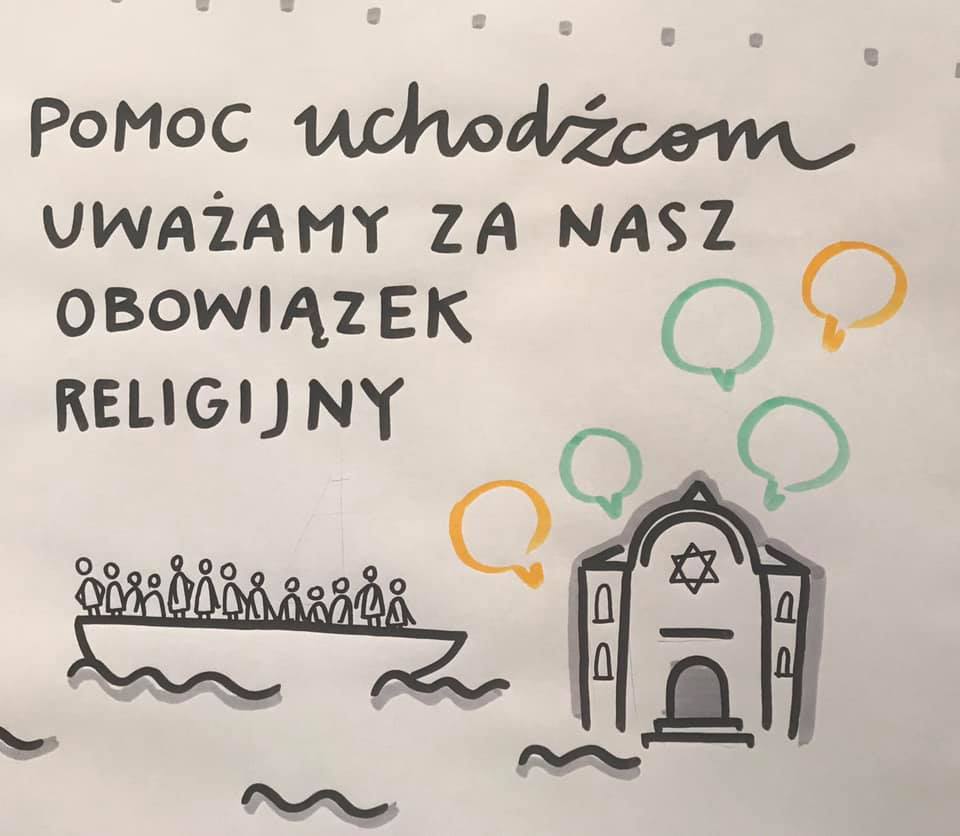 POMOC uchodźcom
UWAŻAMY ZA NASZ
OBOWIĄZEK
RELIGIJNY